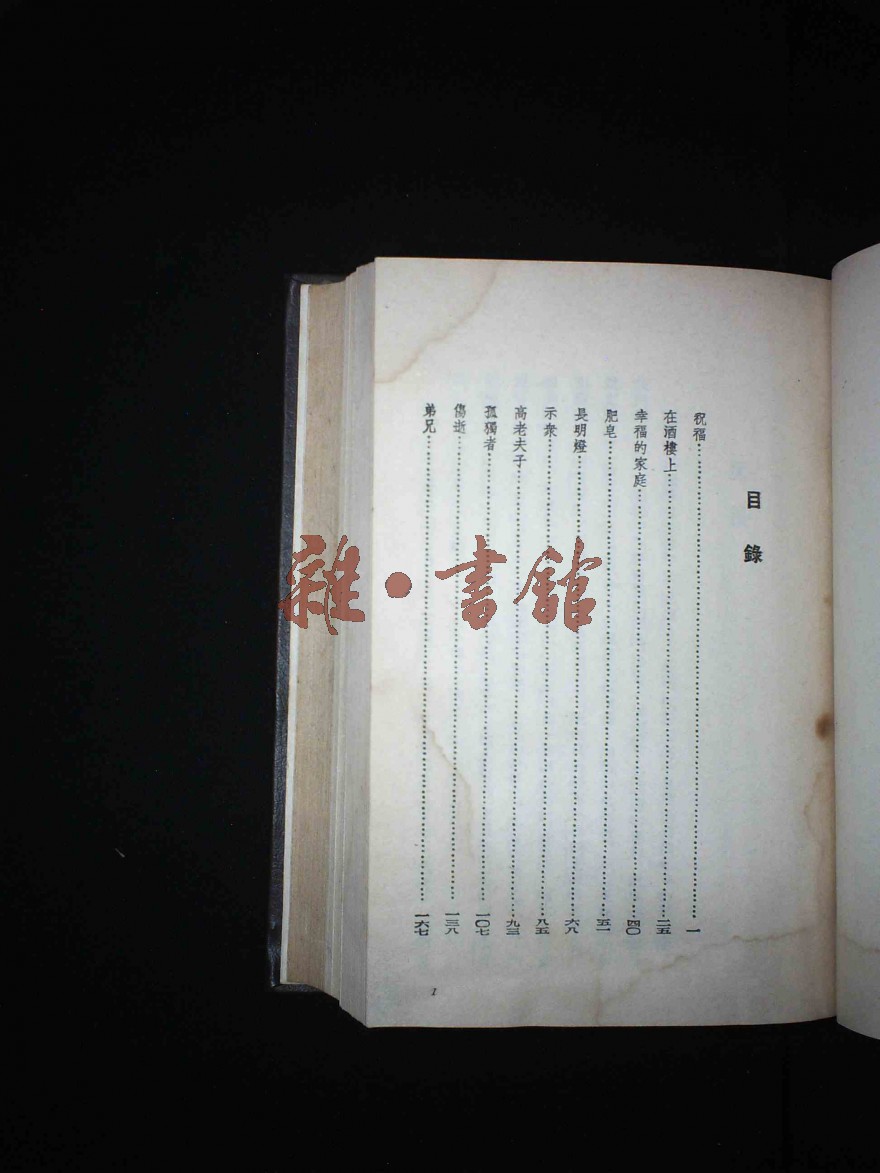 目錄
祝福……一
在酒樓上……二五
幸福的家庭……四〇
肥皂……五一
長明燈……六八
示衆……八五
高老夫子……九三
孤獨者……一〇七
傷逝……一三八
弟兄……一六七
1
雜·書館